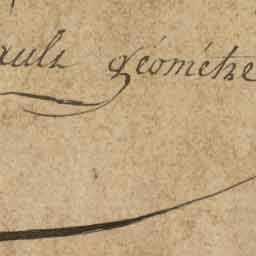 ault géométre